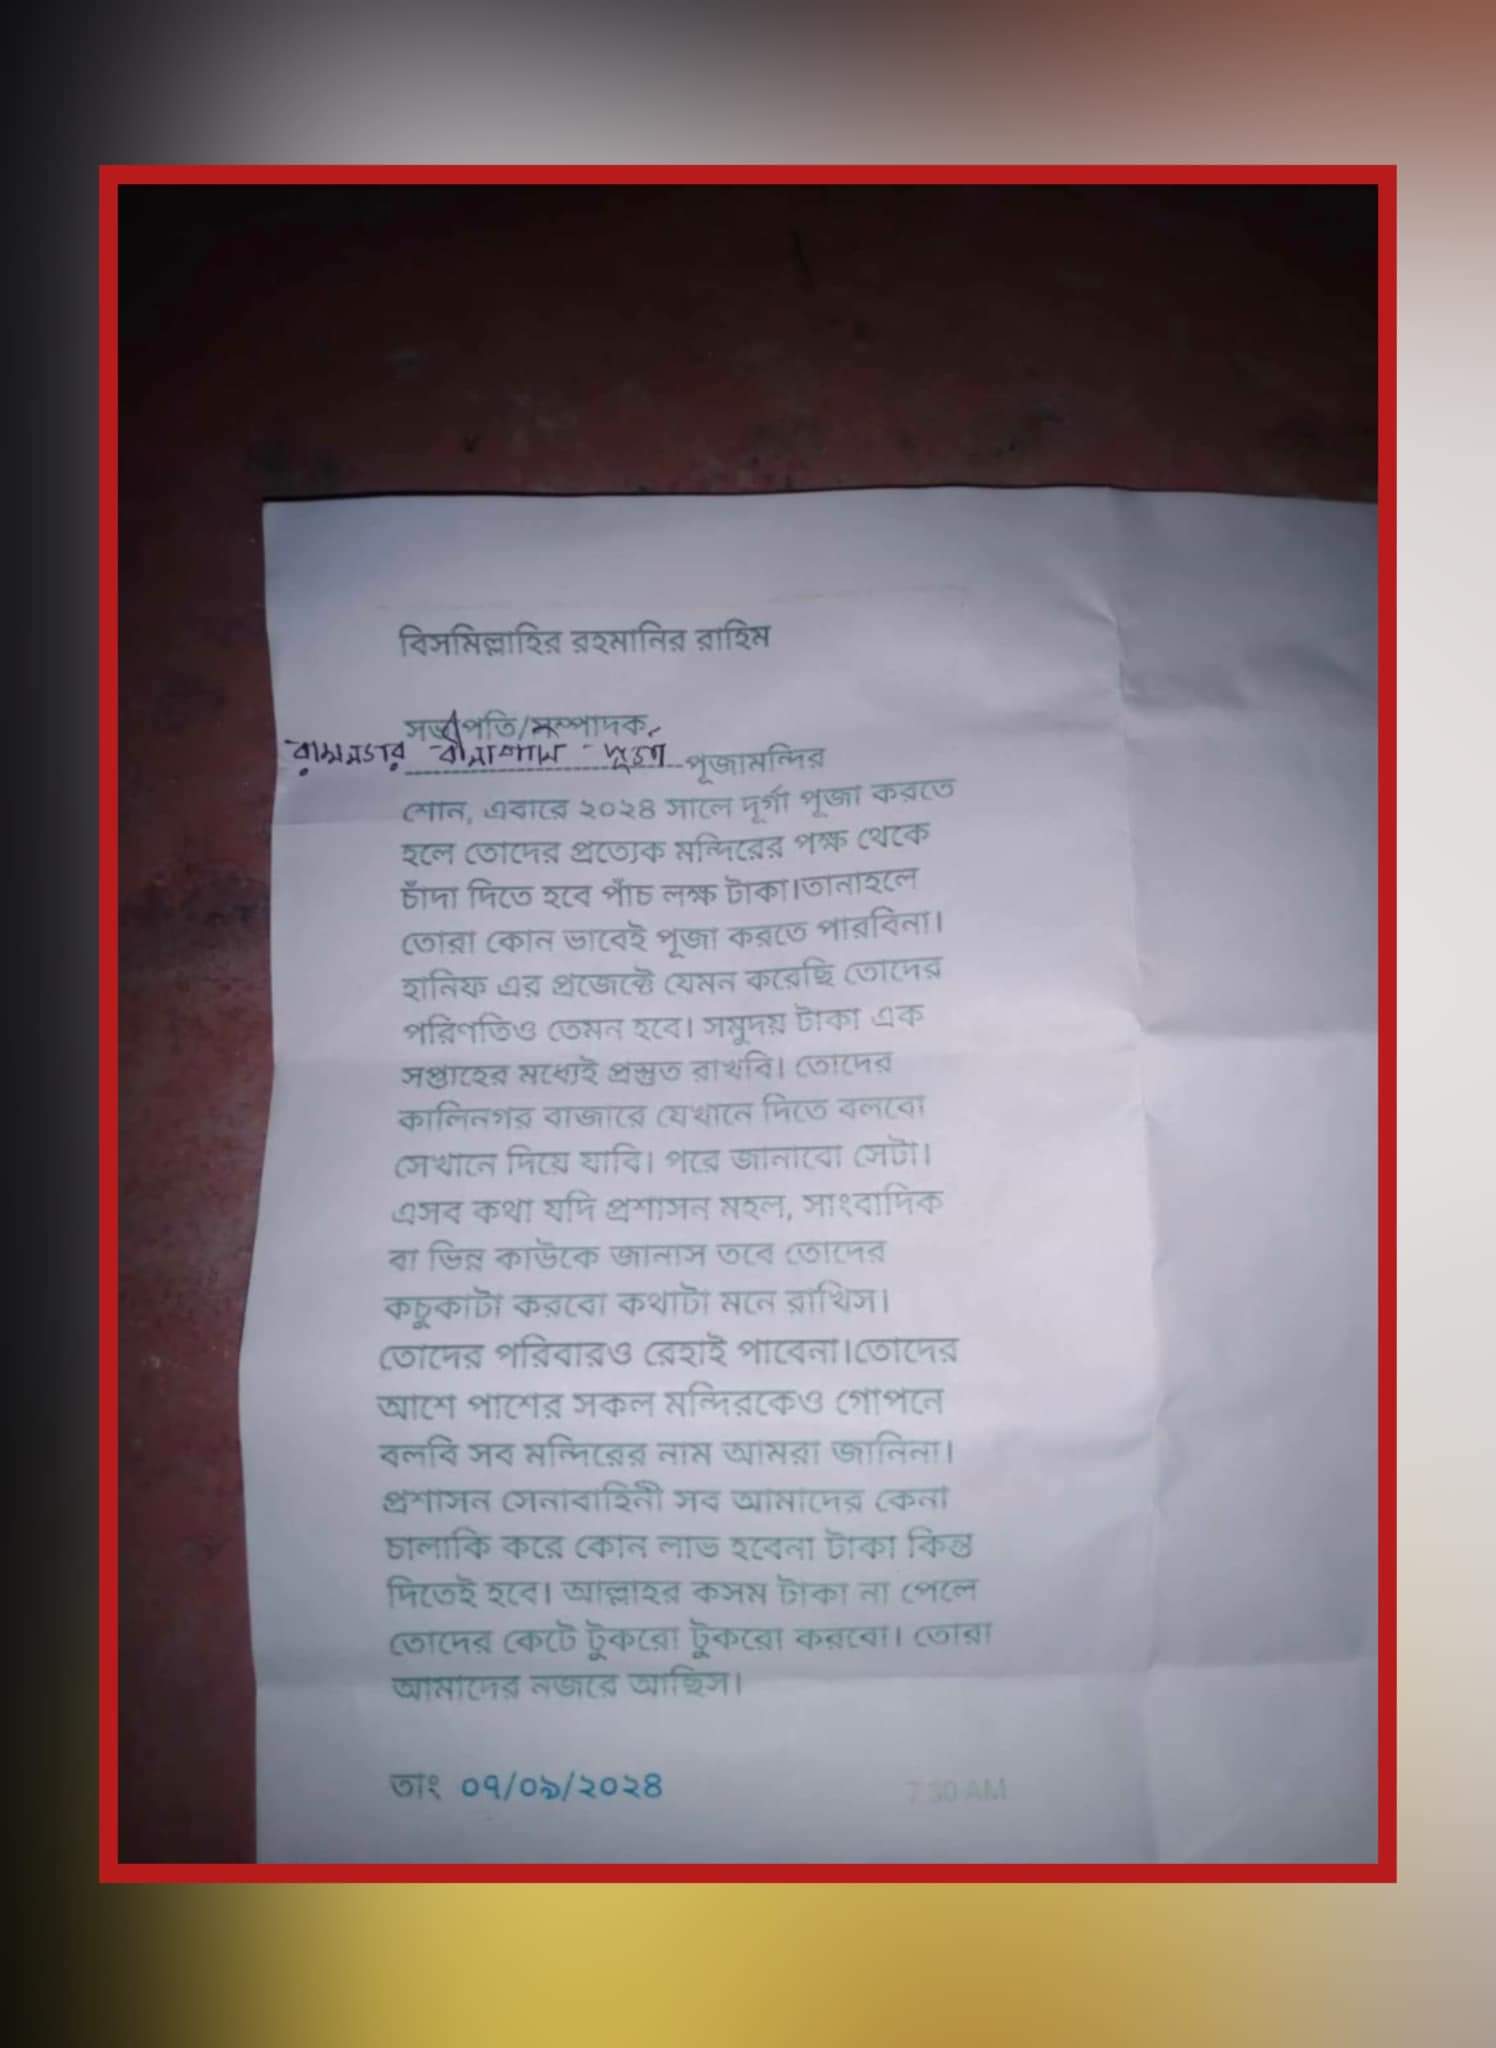 বিসমিল্লাহির রহমানির রাহিম
সভাপতি/সম্পাদক,
রামনগর দূর্গা পূজামন্দির
শোন, এবারে ২০২৪ সালে দূর্গা পূজা করতে
হলে তোদের প্রত্যেক মন্দিরের পক্ষ থেকে
চাঁদা দিতে হবে পাঁচ লক্ষ টাকা।তানাহলে
তোরা কোন ভাবেই পূজা করতে পারবিনা।
হানিফ এর প্রজেক্টে যেমন করেছি তোদের
পরিণতিও তেমন হবে। সমুদয় টাকা এক
সপ্তাহের মধ্যেই প্রস্তুত রাখবি। তোদের
কালিনগর বাজারে যেখানে দিতে বলবো
সেখানে দিয়ে যাবি। পরে জানাবো সেটা।
এসব কথা যদি প্রশাসন মহল, সাংবাদিক
বা ভিন্ন কাউকে জানাস তবে তোদের
কচুকাটা করবো কথাটা মনে রাখিস।
তোদের পরিবারও রেহাই পাবেনা।তোদের
আশে পাশের সকল মন্দিরকেও গোপনে
বলবি সব মন্দিরের নাম আমরা জানিনা।
প্রশাসন সেনাবাহিনী সব আমাদের কেনা
চালাকি করে কোন লাভ হবেনা টাকা কিন্তু
দিতেই হবে। আল্লাহর কসম টাকা না পেলে
তোদের কেটে টুকরো টুকরো করবো। তোরা
আমাদের নজরে আছিস।
তাং ০৭/০৯/২০২৪ 7:30 AM